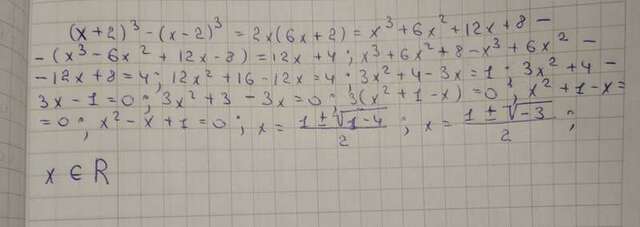 (x+2)³-(x-2)³ = 2x(6x+2) = x³+6x²+12x+8 -
-(x³-6x²+12x-8) = 12x+4; x³+6x²+8-x³+6x² -
-12x+8=4; 12x²+16-12x=4; 3x²+4-3x=1; 3x²+4-
3x-1=0; 3x²+3-3x=0; 3(x²+1-x)=0; x²+1-x=
=0; x²-x+1=0; x= (1±√(1-4))/2; x= (1±√(-3))/2;
x∈R